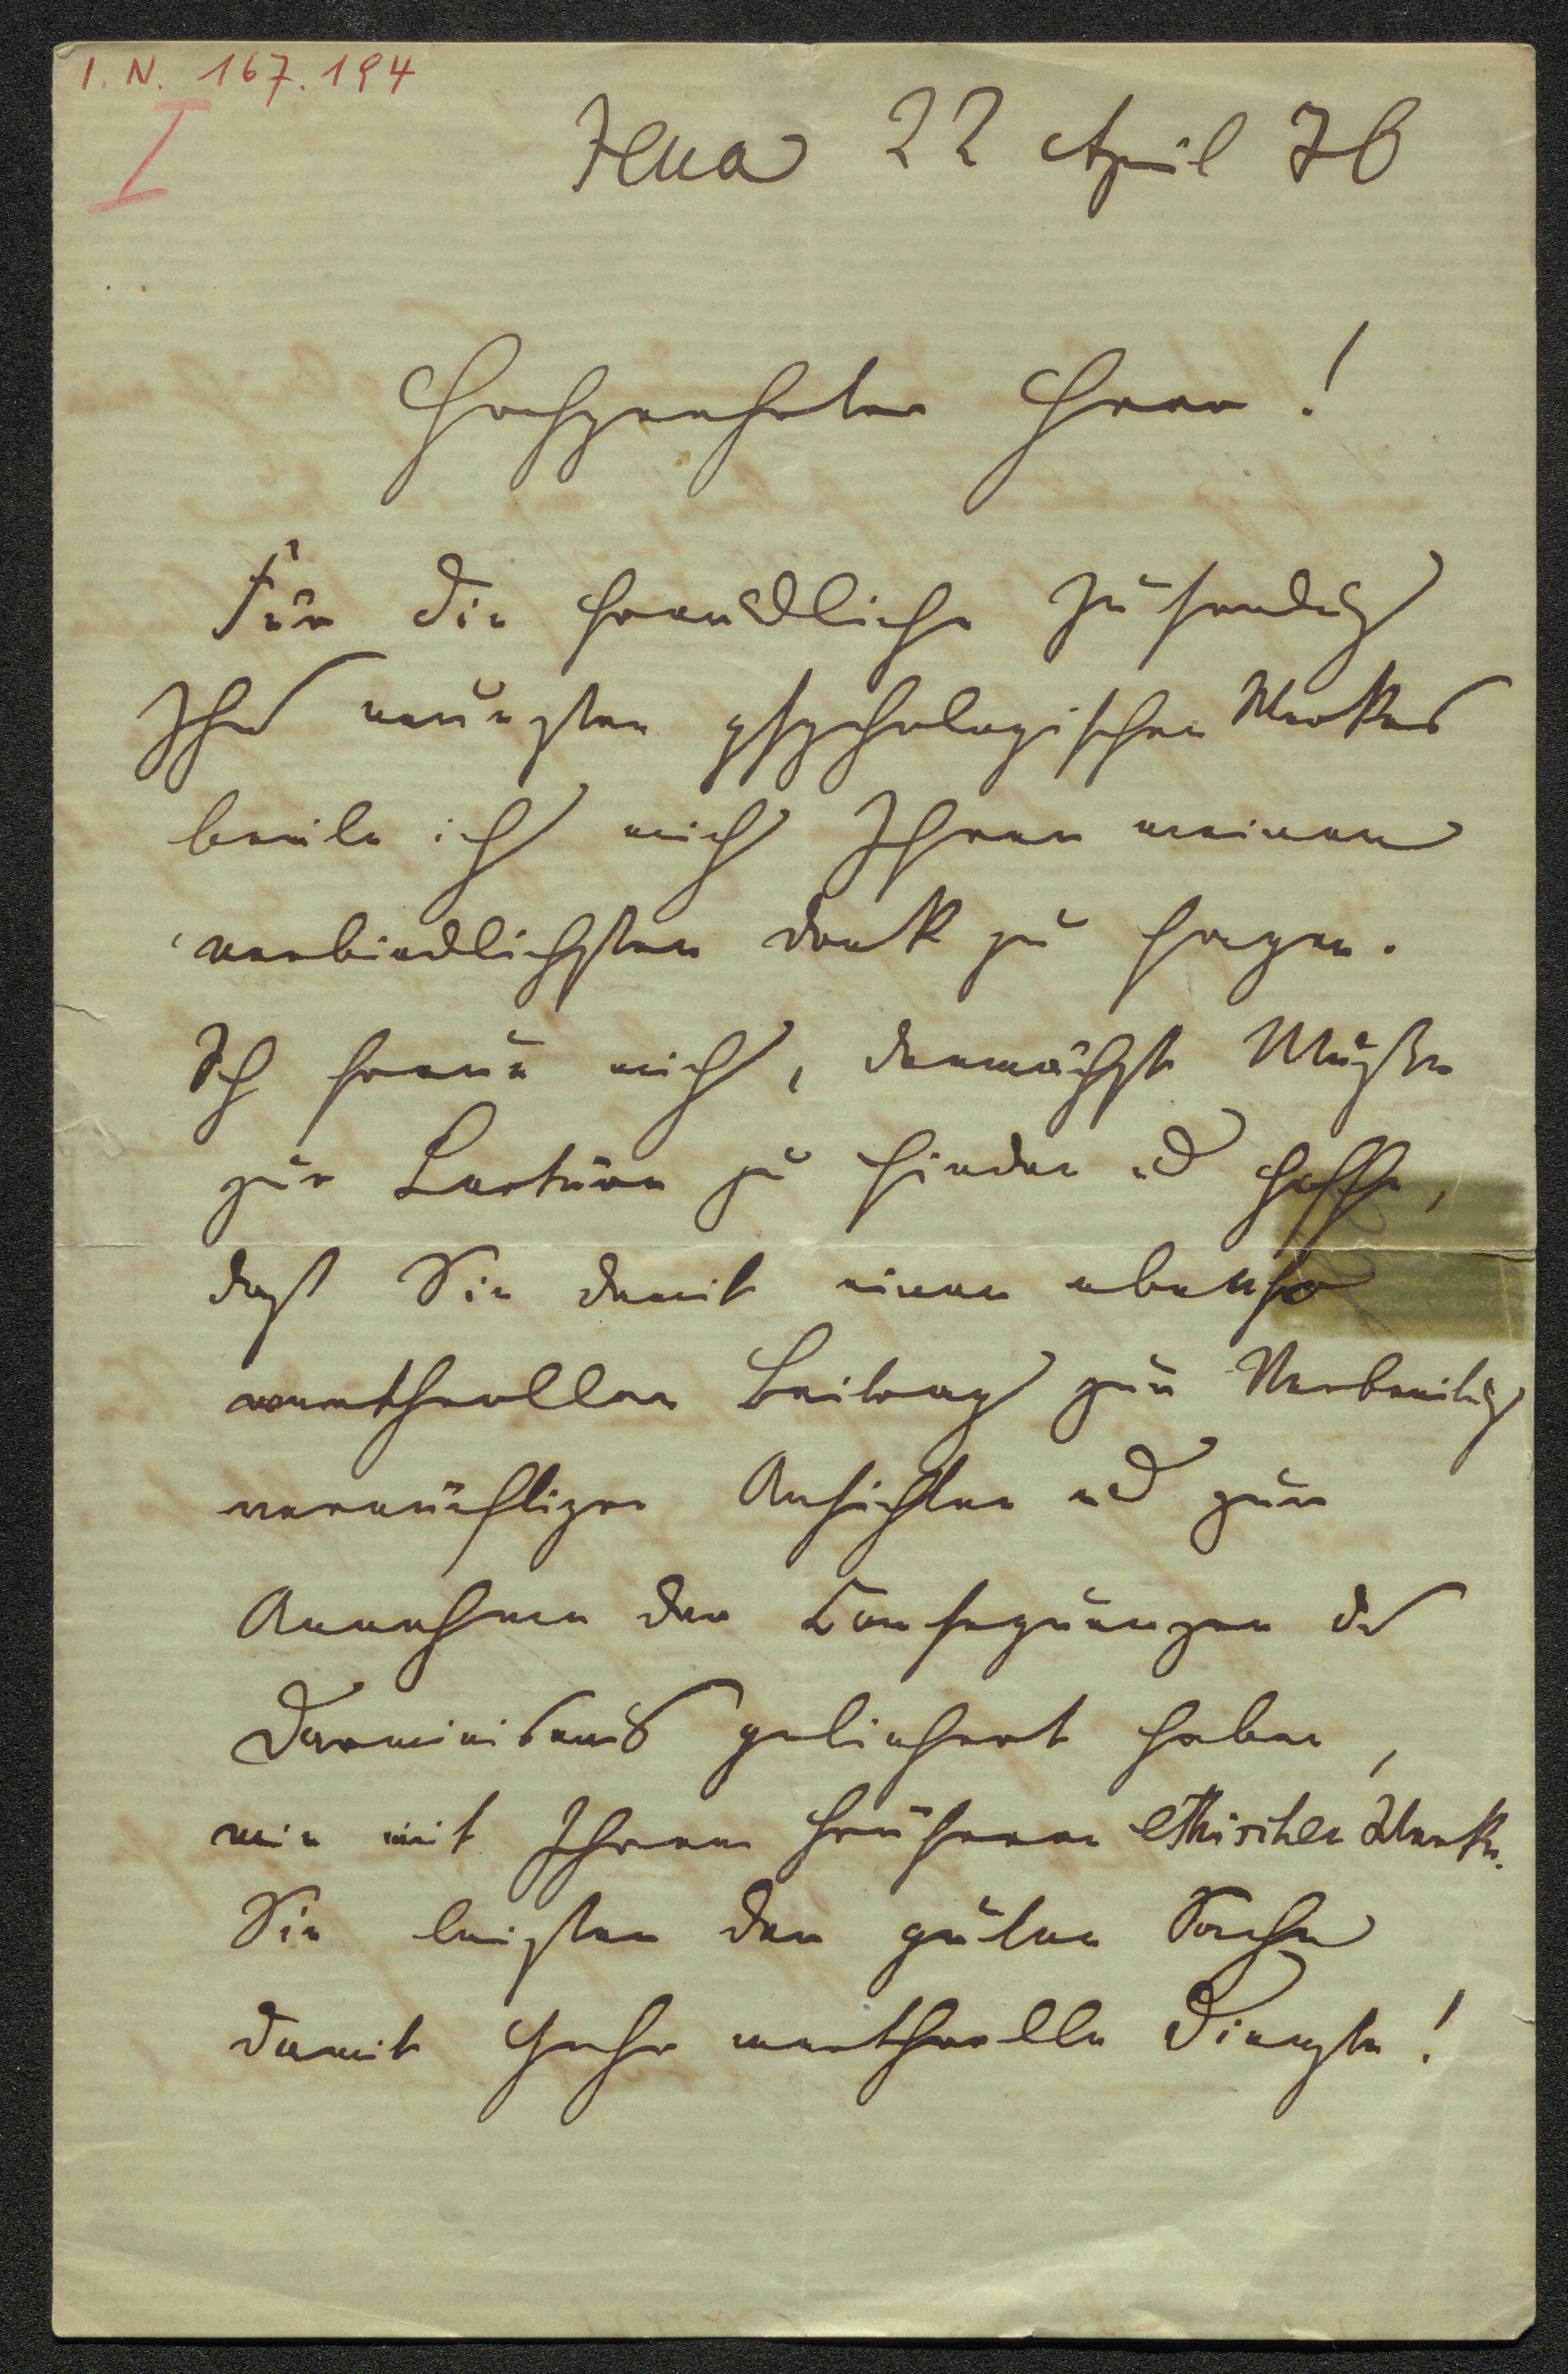 I. N. 167.194
I
Jena 22 April 76
Hochgeehrter Herr!
Für die freundliche Zusendung
Ihres neuesten psychologischen Werkes
beeile ich mich Ihnen meinen
verbindlichsten Dank zu sagen.
Ich freue mich, demnächst Muße
zur Lectüre zu finden und hoffe,
daß Sie damit einen ebenso
werthvollen Beitrag zur Verbreitung
vernünftiger Ansichten und zur
Annahme der Consequenzen des
Darwinismus geliefert haben,
wie mit Ihrem früheren ethischen Werke.
Sie leisten der guten Sache
damit sehr werthvolle Dienste!